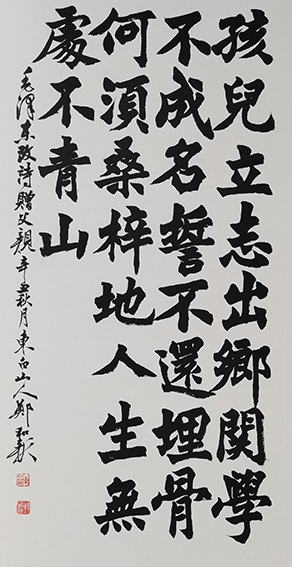 孩兒立志出鄉関學
不成名誓不還埋骨
何湏桑梓地人生無
處不青山
毛澤東改詩贈父親辛丑秋月東白山人鄭和